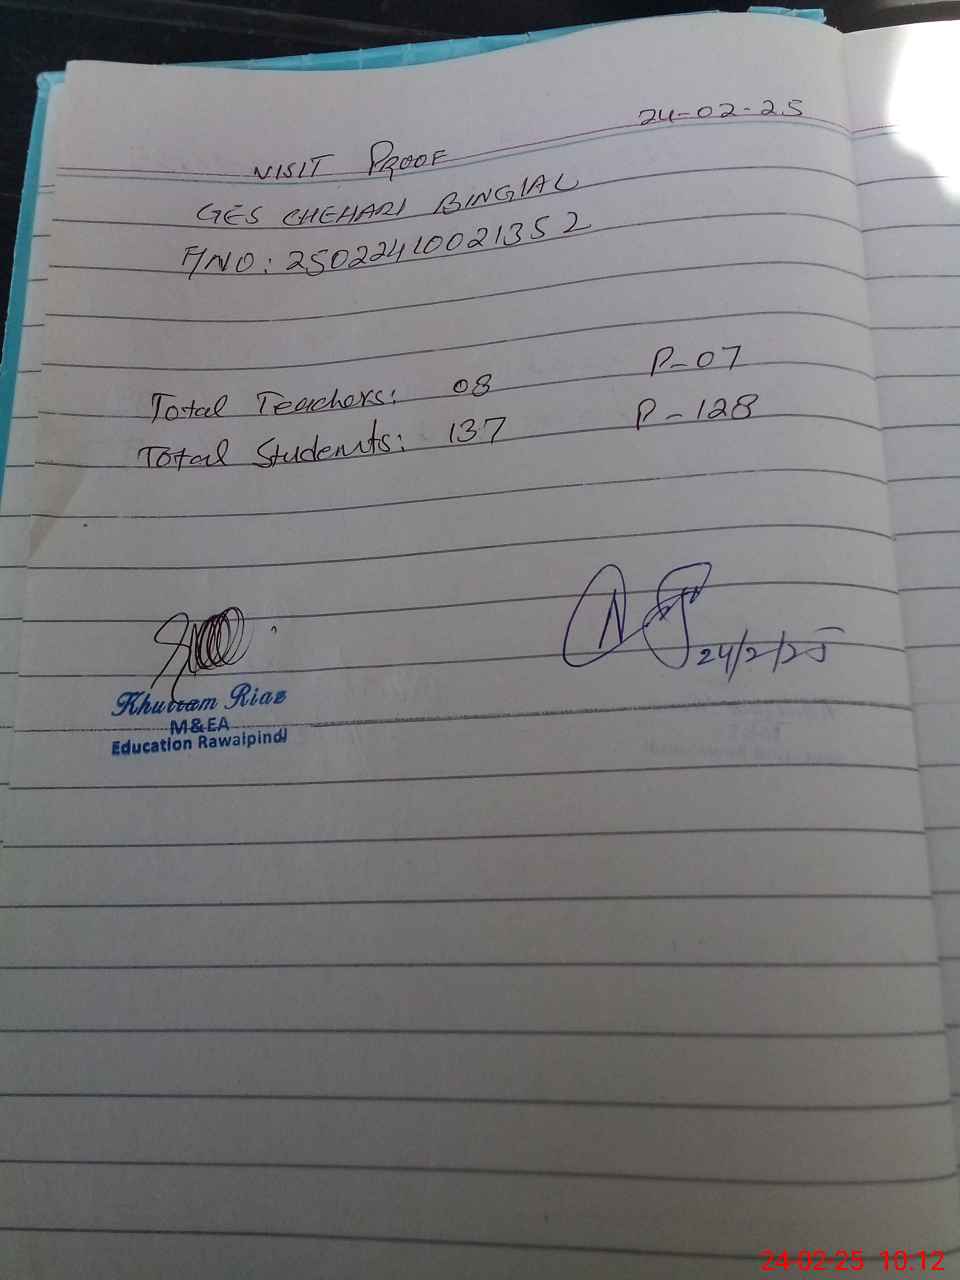 24-02-25
VISIT PROOF
GES CHEHARI BINGIAL
F/NO: 25022410021352
Total Teachers: 08 P-07
Total Students: 137 P-128
24/2/25
Khurram Riaz
M&EA
Education Rawalpindi
24-02-25 10.12